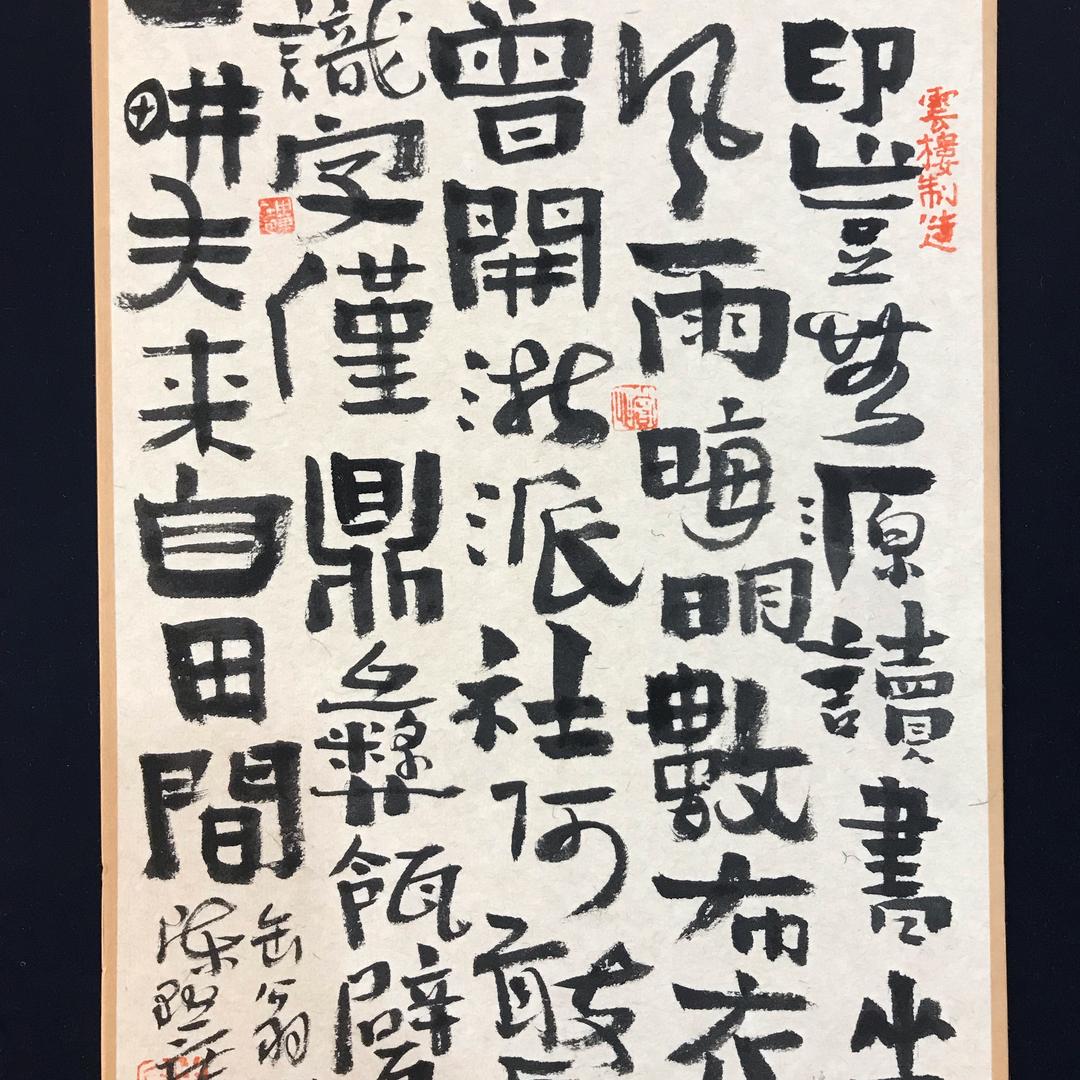 雲樓制造
印豈無源讀書坐
風雨晦明數布衣
曾開浙派社何敢
識字僅鼎彝瓴甓
畊夫来自田間
缶翁
陳